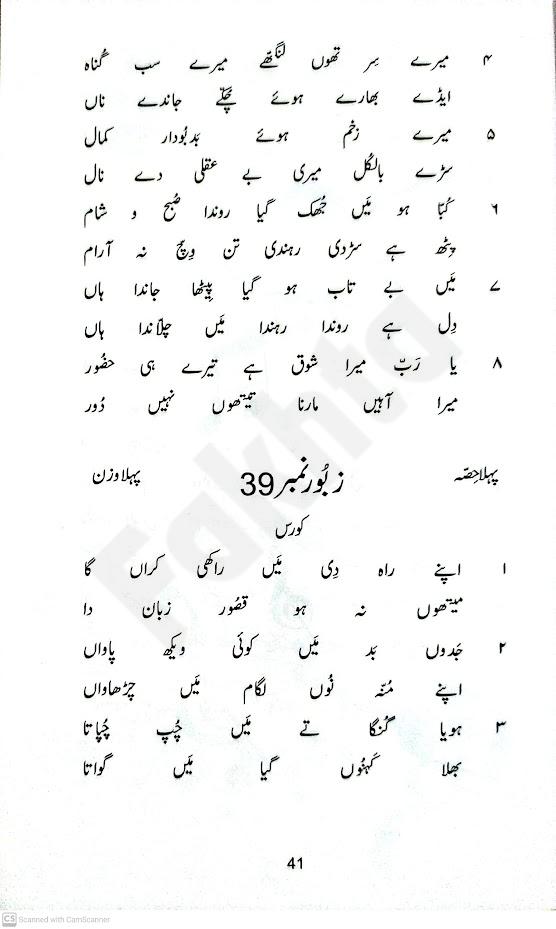 ۴ میرے سِر تھوں لنگھّے میرے سب گُناہ
ایڈے بھارے ہوئے چُکّے جاندے ناں
۵ میرے زخم ہوئے بدبُودار کمال
سڑے بالکُل میری بے عقلی دے نال
۶ کُبّا ہو مَیں جُھک گیا روندا صُبح و شام
پِٹھ ہے سڑدی رہندی تن وِچ نہ آرام
۷ مَیں بے تاب ہو گیا پِیٹھا جاندا ہاں
دِل ہے روندا رہندا مَیں چلاّندا ہاں
۸ یا رَبّ میرا شوق ہے تیرے ہی حضُور
میرا آہیں مارنا تیتھوں نہیں دُور
پہلا حِصّہ زبُور نمبر 39 پہلا وزن
کورس
۱ اپنے راہ دِی مَیں راکھی کراں گا
میتھوں نہ ہو قصُور زبان دا
۲ جَدوں بَد مَیں کوئی ویکھ پاواں
اپنے مُنّہ نُوں لگام مَیں چڑھاواں
۳ ہویا گُنگا تے مَیں چُپ چُپاتا
بھلا کَہنُوں گیا مَیں گواتا
41
Fakhta
CS Scanned with CamScanner